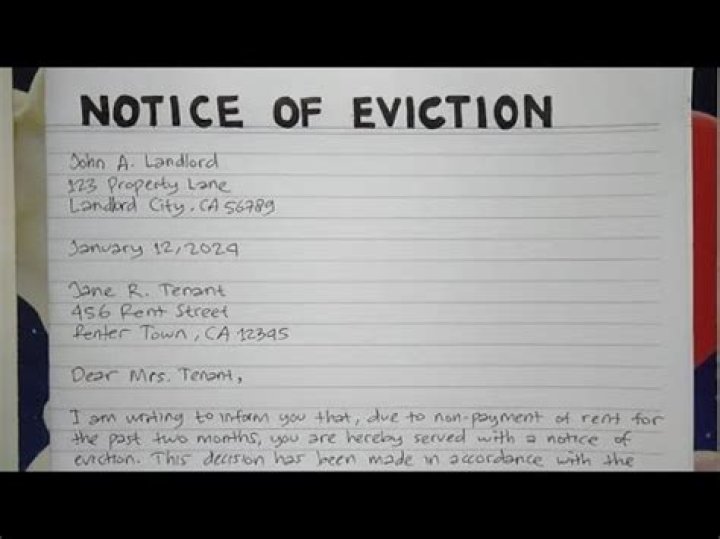 NOTICE OF EVICTION
John A. Landlord
123 Property Lane
Landlord City, CA 56789
January 12, 2024
Jane R. Tenant
456 Rent Street
Renter Town, CA 12345
Dear Mrs. Tenant,
I am writing to inform you that, due to non-payment of rent for
the past two months, you are hereby served with a notice of
eviction. This decision has been made in accordance with the